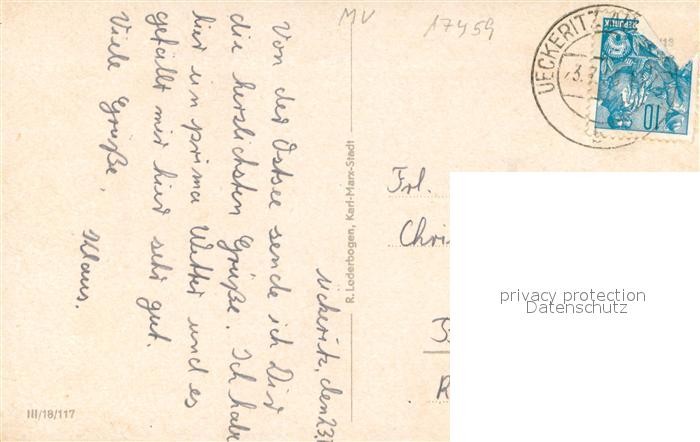 MV
17459
UECKERITZ
REPUBLIK
10
Ückeritz, den 23.
Von der Ostsee sende ich Dir
die herzlichsten Grüße. Ich habe
hier un prima Wetter und es
gefällt mir hier sehr gut.
Viele Grüße,
Klaus.
R. Lederbogen, Karl-Marx-Stadt
Frl.
Chri
III/18/117
privacy protection
Datenschutz